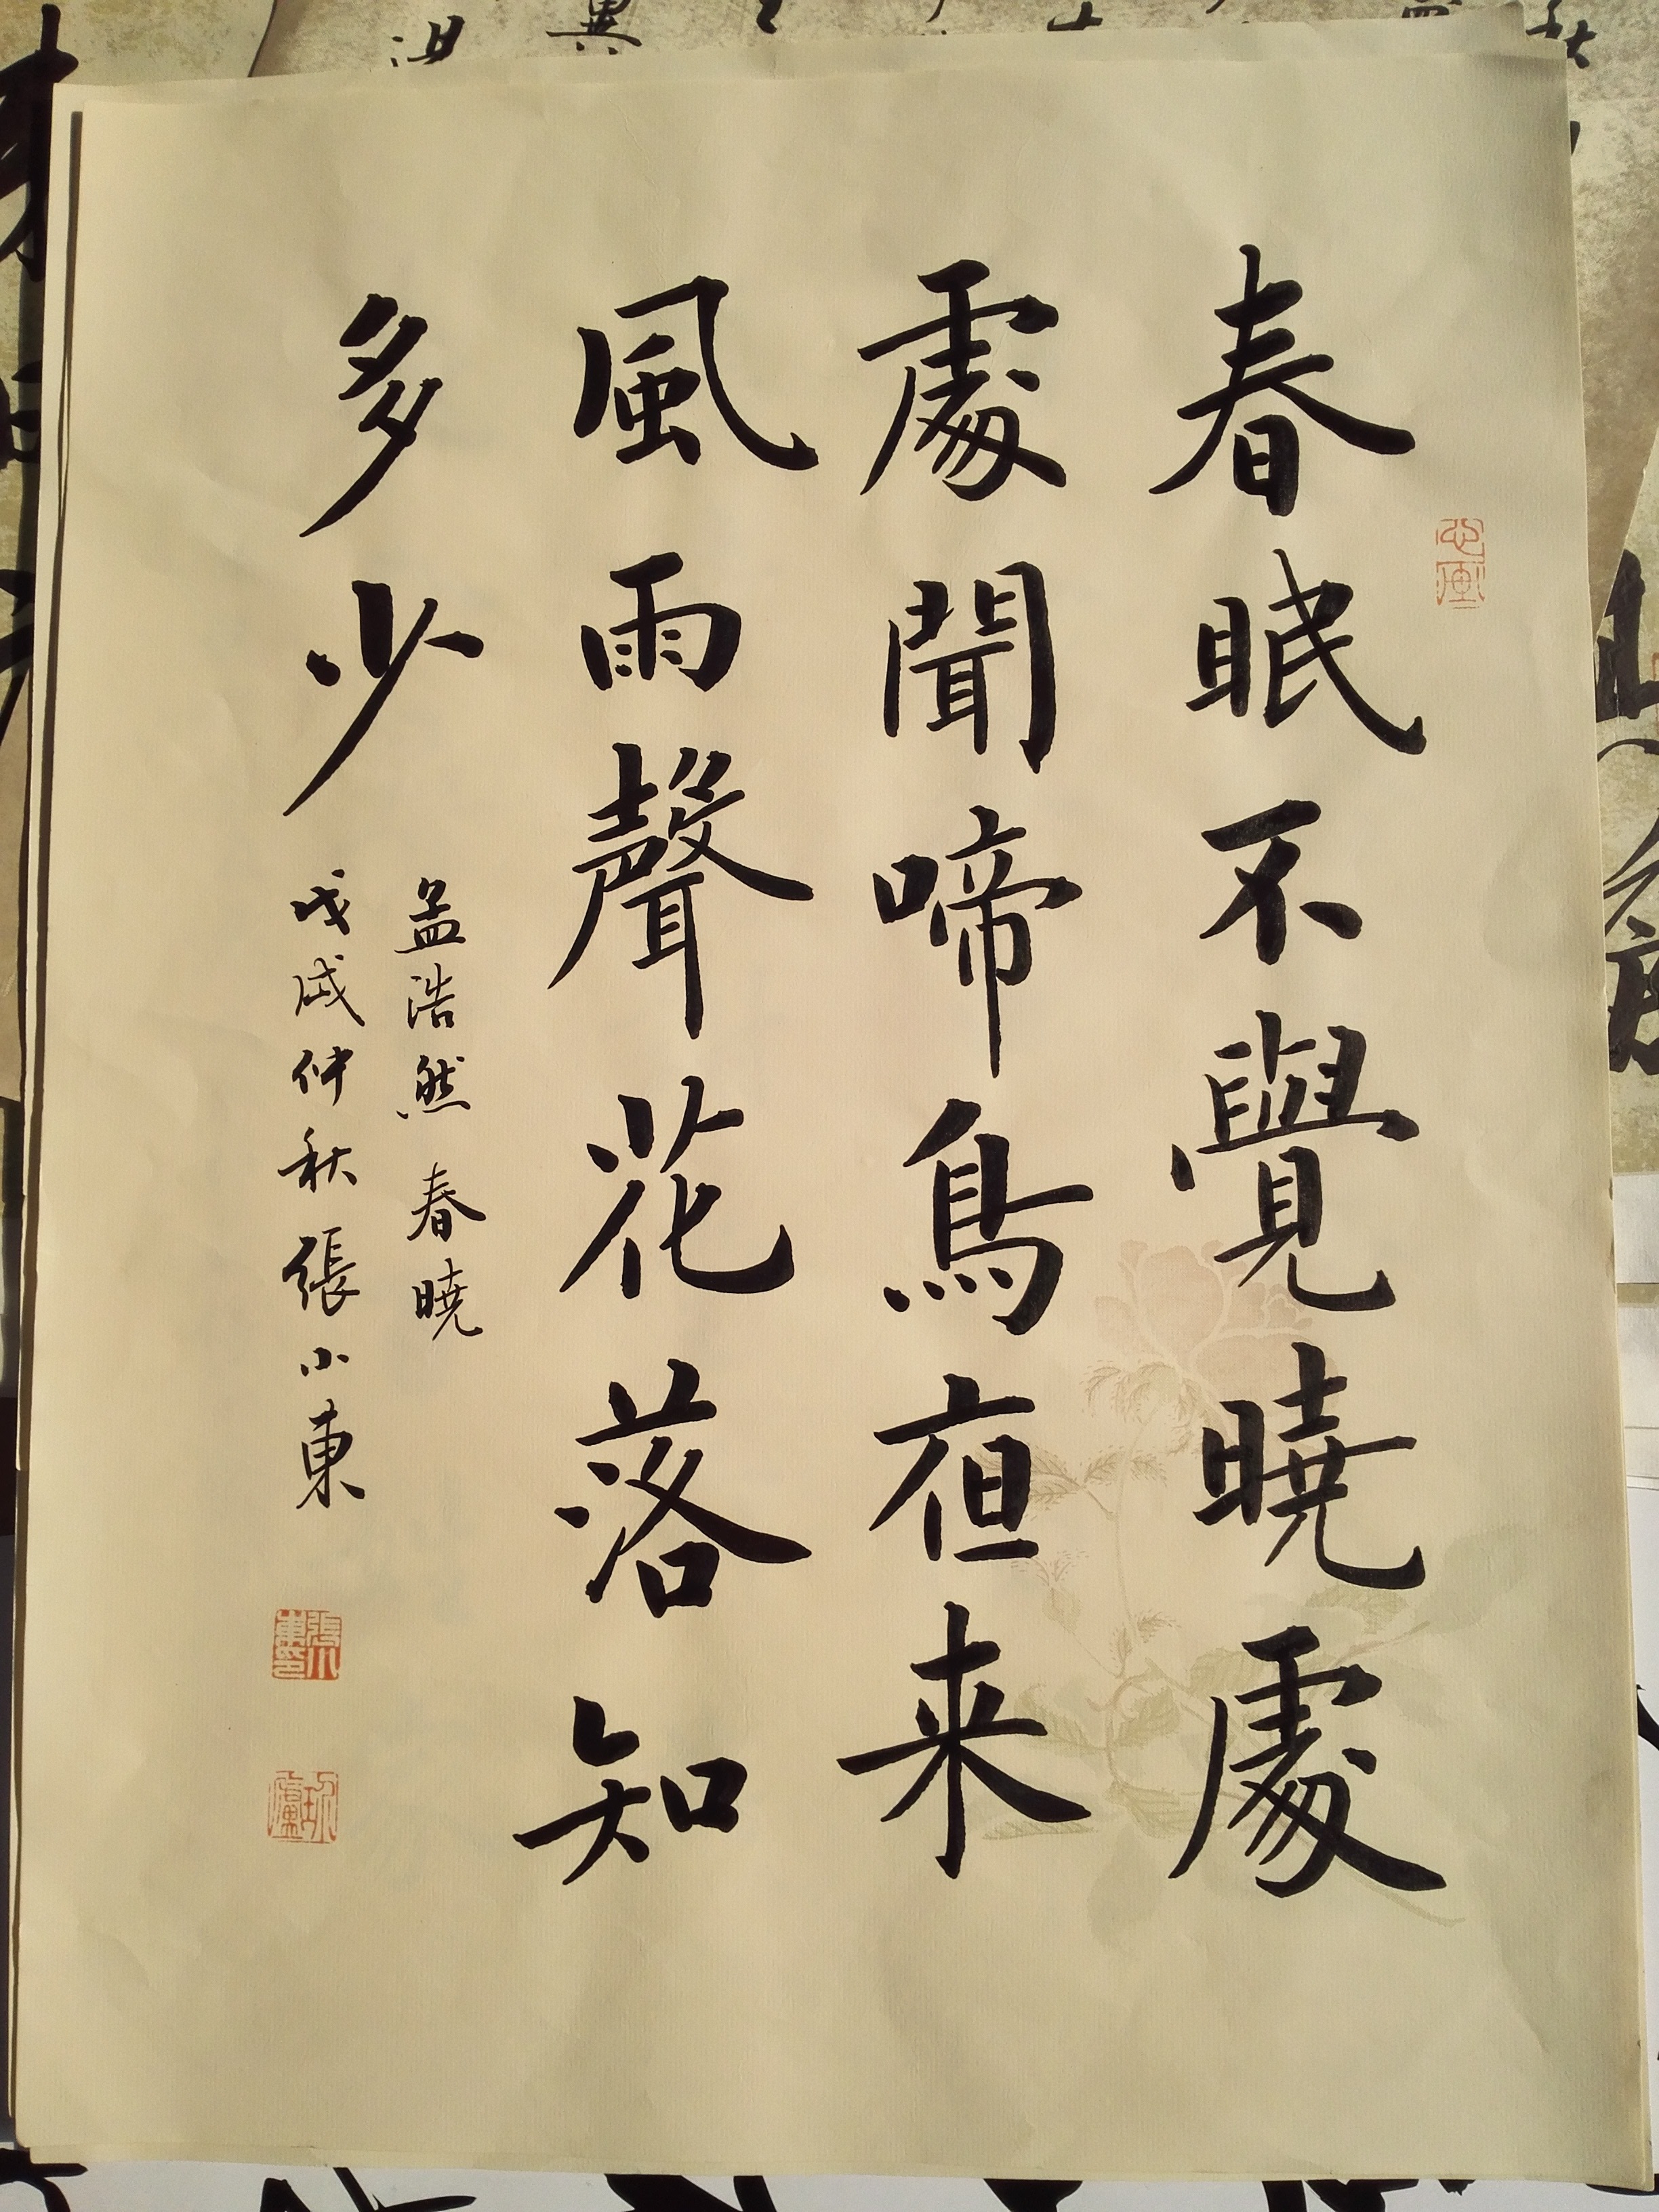 春眠不覺曉處
處聞啼鳥夜来
風雨聲花落知
多少
孟浩然 春曉
戊戌仲秋張小東